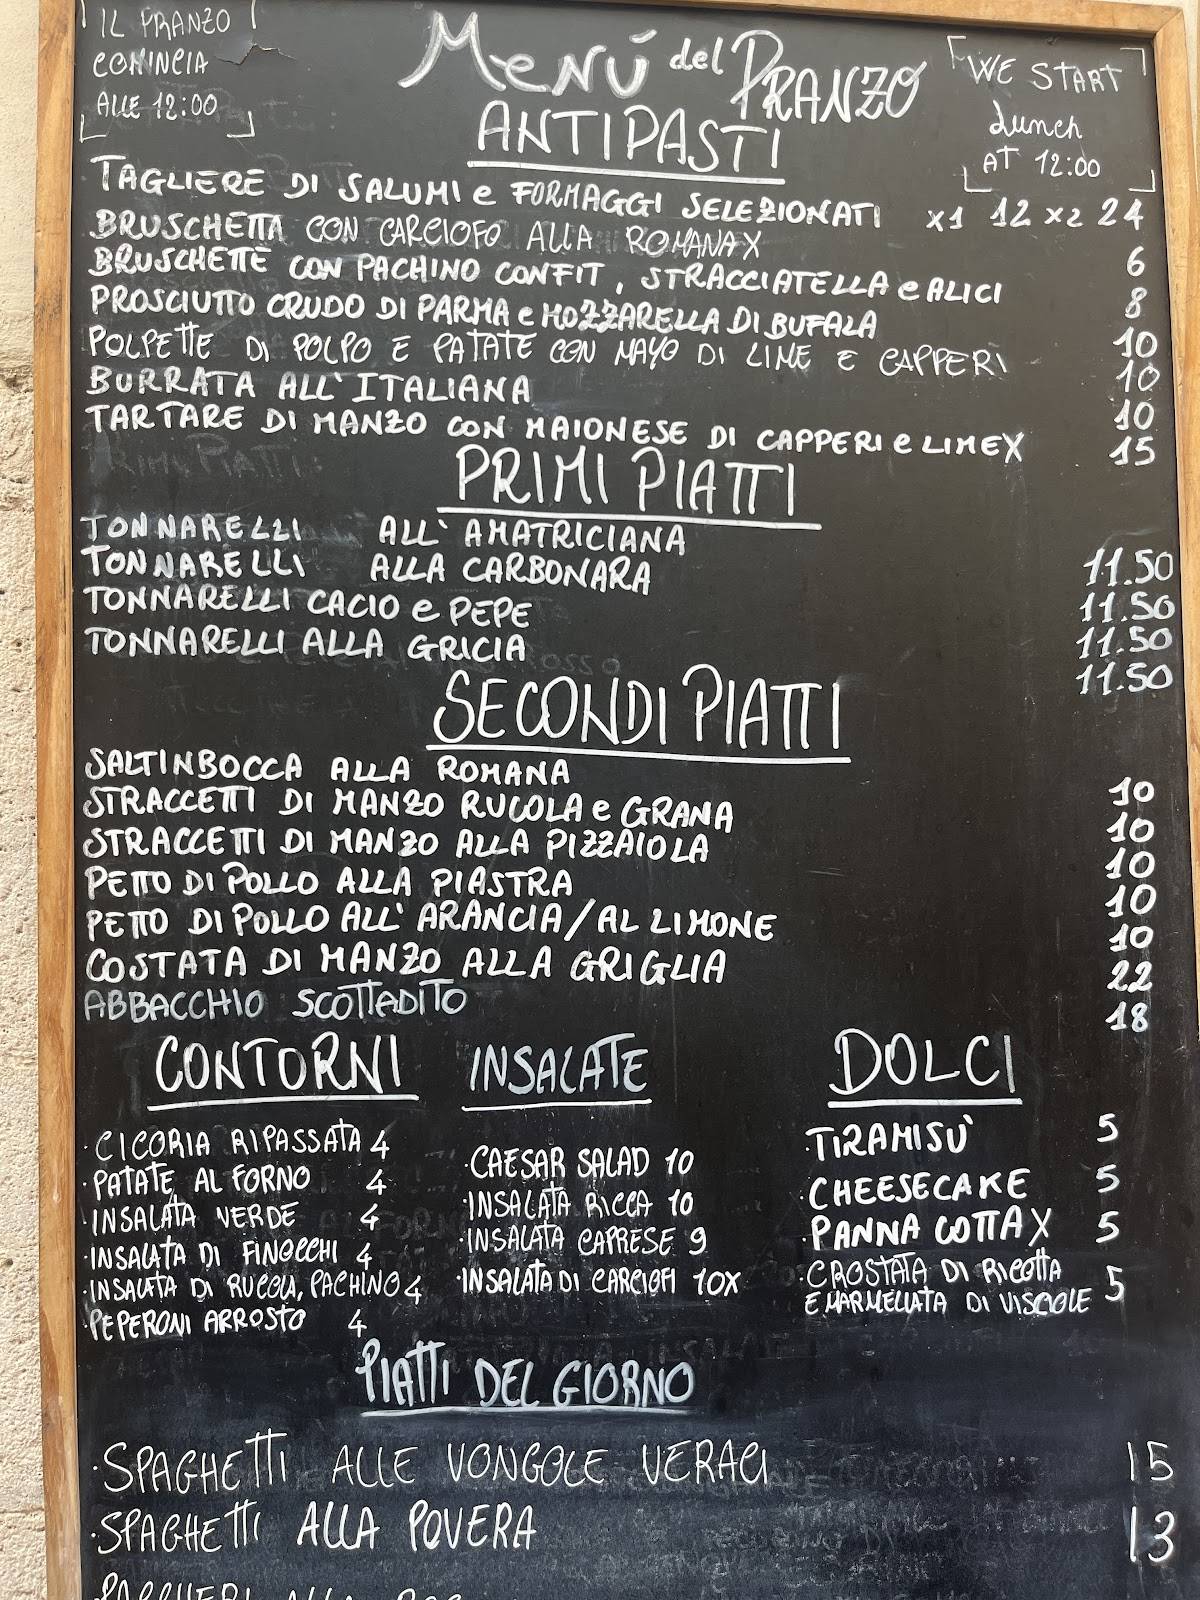 IL PRANZO
COMINCIA
ALLE 12:00
MENÚ del PRANZO
WE START
LUNCH
AT 12:00
ANTIPASTI
TAGLIERE DI SALUMI e FORMAGGI SELEZIONATI x1 12 x2 24
BRUSCHETTA CON CARCIOFO ALLA ROMANA X 6
BRUSCHETTE CON PACHINO CONFIT, STRACCIATELLA e ALICI 8
PROSCIUTTO CRUDO DI PARMA e MOZZARELLA DI BUFALA 10
POLPETTE DI POLPO E PATATE CON MAYO DI LIME E CAPPERI 10
BURRATA ALL'ITALIANA 10
TARTARE DI MANZO CON MAIONESE DI CAPPERI e LIME X 15
PRIMI PIATTI
TONNARELLI ALL' AMATRICIANA 11.50
TONNARELLI ALLA CARBONARA 11.50
TONNARELLI CACIO e PEPE 11.50
TONNARELLI ALLA GRICIA 11.50
SECONDI PIATTI
SALTINBOCCA ALLA ROMANA 10
STRACCETTI DI MANZO RUCOLA e GRANA 10
STRACCETTI DI MANZO ALLA PIZZAIOLA 10
PETTO DI POLLO ALLA PIASTRA 10
PETTO DI POLLO ALL' ARANCIA/AL LIMONE 10
COSTATA DI MANZO ALLA GRIGLIA 22
ABBACCHIO SCOTTADITO 18
CONTORNI
·CICORIA RIPASSATA 4
·PATATE AL FORNO 4
·INSALATA VERDE 4
·INSALATA DI FINOCCHI 4
·INSALATA DI RUCOLA, PACHINO 4
·PEPERONI ARROSTO 4
INSALATE
·CAESAR SALAD 10
·INSALATA RICCA 10
·INSALATA CAPRESE 9
·INSALATA DI CARCIOFI 10X
DOLCI
·TIRAMISÙ 5
·CHEESECAKE 5
·PANNA COTTA X 5
·CROSTATA DI RICOTTA
E MARMELLATA DI VISCIOLE 5
PIATTI DEL GIORNO
·SPAGHETTI ALLE VONGOLE VERACI 15
·SPAGHETTI ALLA POVERA 13